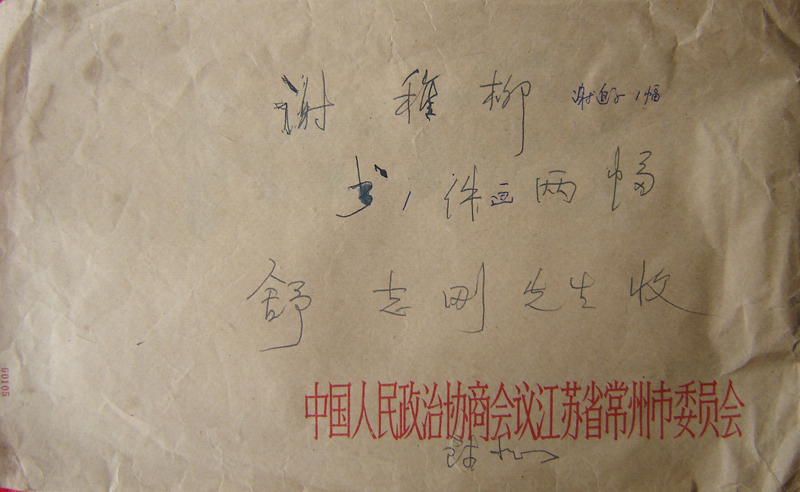 谢稚柳 谢 1幅
书1件画两幅
舒志刚先生收
中国人民政治协商会议江苏省常州市委员会
60105